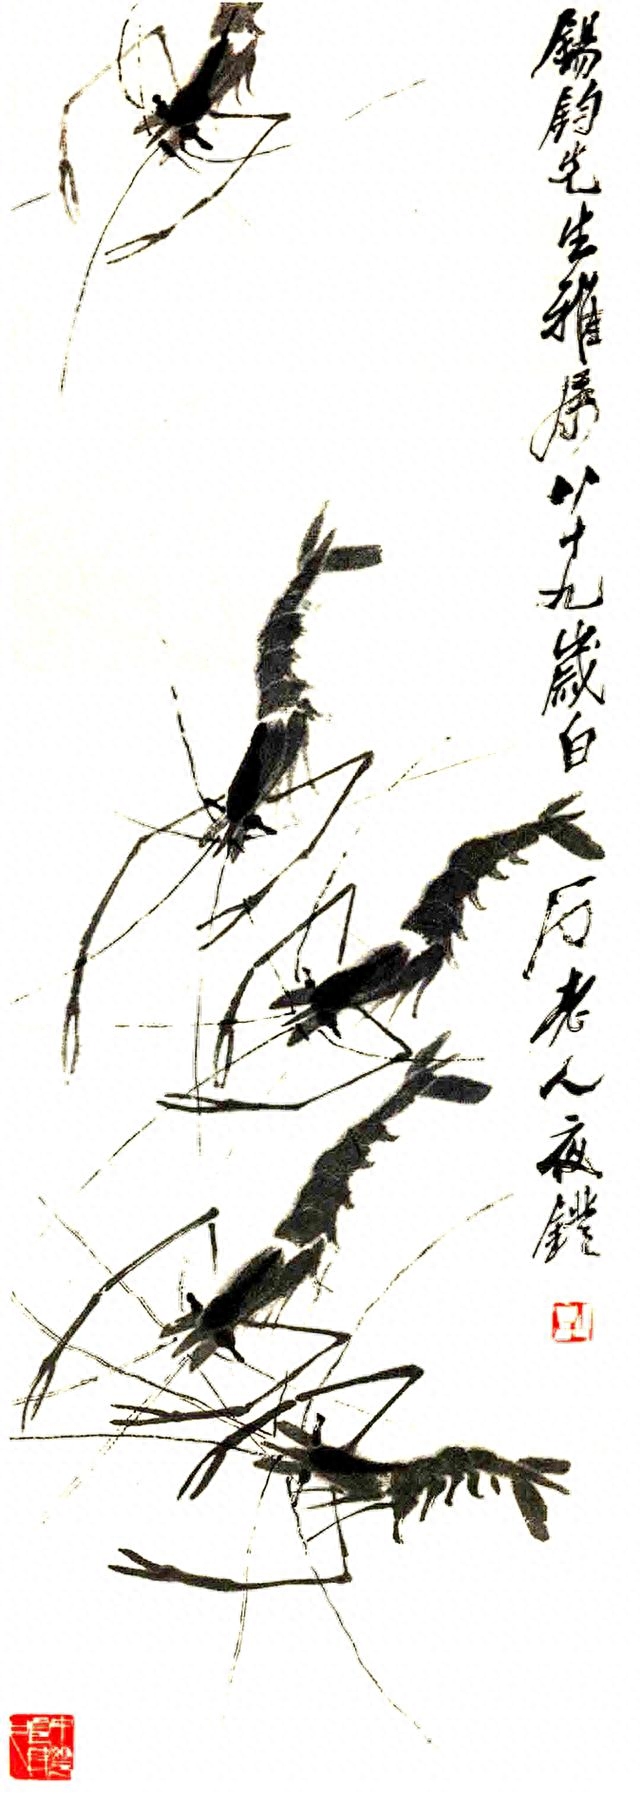 錫鈞先生雅屬八十九歲白石老人夜鐙